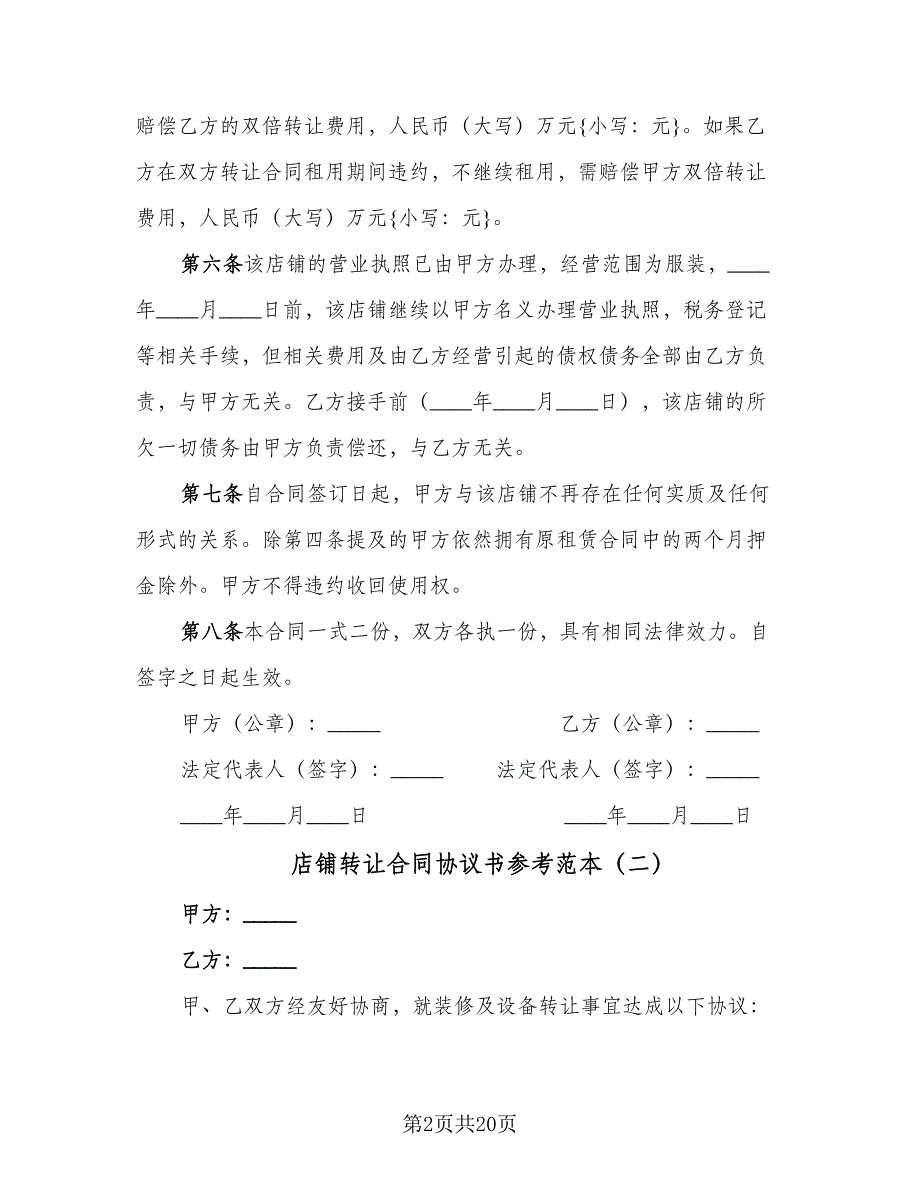 赔偿乙方的双倍转让费用，人民币（大写）万元{小写：元}。如果乙
方在双方转让合同租用期间违约，不继续租用，需赔偿甲方双倍转让
费用，人民币（大写）万元{小写：元}。
第六条该店铺的营业执照已由甲方办理，经营范围为服装，____
年____月____日前，该店铺继续以甲方名义办理营业执照，税务登记
等相关手续，但相关费用及由乙方经营引起的债权债务全部由乙方负
责，与甲方无关。乙方接手前（____年____月____日），该店铺的所
欠一切债务由甲方负责偿还，与乙方无关。
第七条自合同签订日起，甲方与该店铺不再存在任何实质及任何
形式的关系。除第四条提及的甲方依然拥有原租赁合同中的两个月押
金除外。甲方不得违约收回使用权。
第八条本合同一式二份，双方各执一份，具有相同法律效力。自
签字之日起生效。
甲方（公章）：_____ 乙方（公章）：_____
法定代表人（签字）：_____ 法定代表人（签字）：_____
____年____月____日 ____年____月____日
店铺转让合同协议书参考范本（二）
甲方：_____
乙方：_____
甲、乙双方经友好协商，就装修及设备转让事宜达成以下协议：
第2页共20页